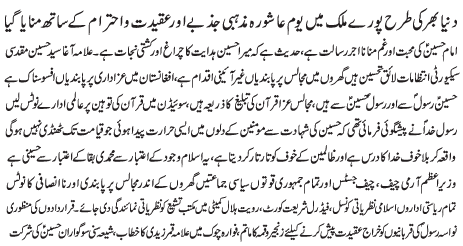 دنیا بھر کی طرح پورے ملک میں یوم عاشورہ مذہبی جذبے اور عقیدت و احترام کے ساتھ منایا گیا
امام حسینؑ کی محبت اور غم منانا اجر رسالت ہے، حدیث ہے کہ میرا حسین ہدایت کا چراغ اور کشتی نجات ہے۔ علامہ آغا سید حسین مقدسی
سیکیورٹی انتظامات لائق تحسین ہیں گھروں میں مجالس پر پابندیاں غیر آئینی اقدام ہے، افغانستان میں عزاداری پر پابندیاں افسوسناک ہے
حسینؑ رسولؐ سے اور رسولؐ حسینؑ سے ہیں، مجالس عزا قرآن کی تبلیغ کا ذریعہ ہیں، سوئیڈن میں قرآن کی توہین پر عالمی ادارے نوٹس لیں
رسول خداؐ نے پیشگوئی فرمائی تھی کہ حسینؑ کی شہادت سے مومنین کے دلوں میں ایسی حرارت پیدا ہوئی جو قیامت تک ٹھنڈی نہیں ہوگی
واقعہ کربلا خوف خدا کا درس ہے اور ظالمین کے خوف کو تار تار کر دیتا ہے، یہ اسلام وجود کے اعتبار سے محمدی بقا کے اعتبار سے حسینی ہے
وزیراعظم آرمی چیف، چیف جسٹس اور تمام جمہوری قوتوں سیاسی جماعتیں گھروں کے اندر مجالس پر پابندی اور ناانصافی کا نوٹس لیں
تمام ریاستی اداروں اسلامی نظریاتی کونسل، فیڈرل شریعت کورٹ، رویت ہلال کمیٹی میں مکتب تشیع کو نظریاتی نمائندگی دی جائے۔ قراردادوں کی منظوری
نواسہ رسولؐ کی قربانیوں کو خراج عقیدت پیش کرنے کیلئے زنجیر قمہ کا ماتم، فوارہ چوک میں علامہ قمر زیدی کا خطاب، شیعہ سنی سوگواران حسینؑ کی شرکت